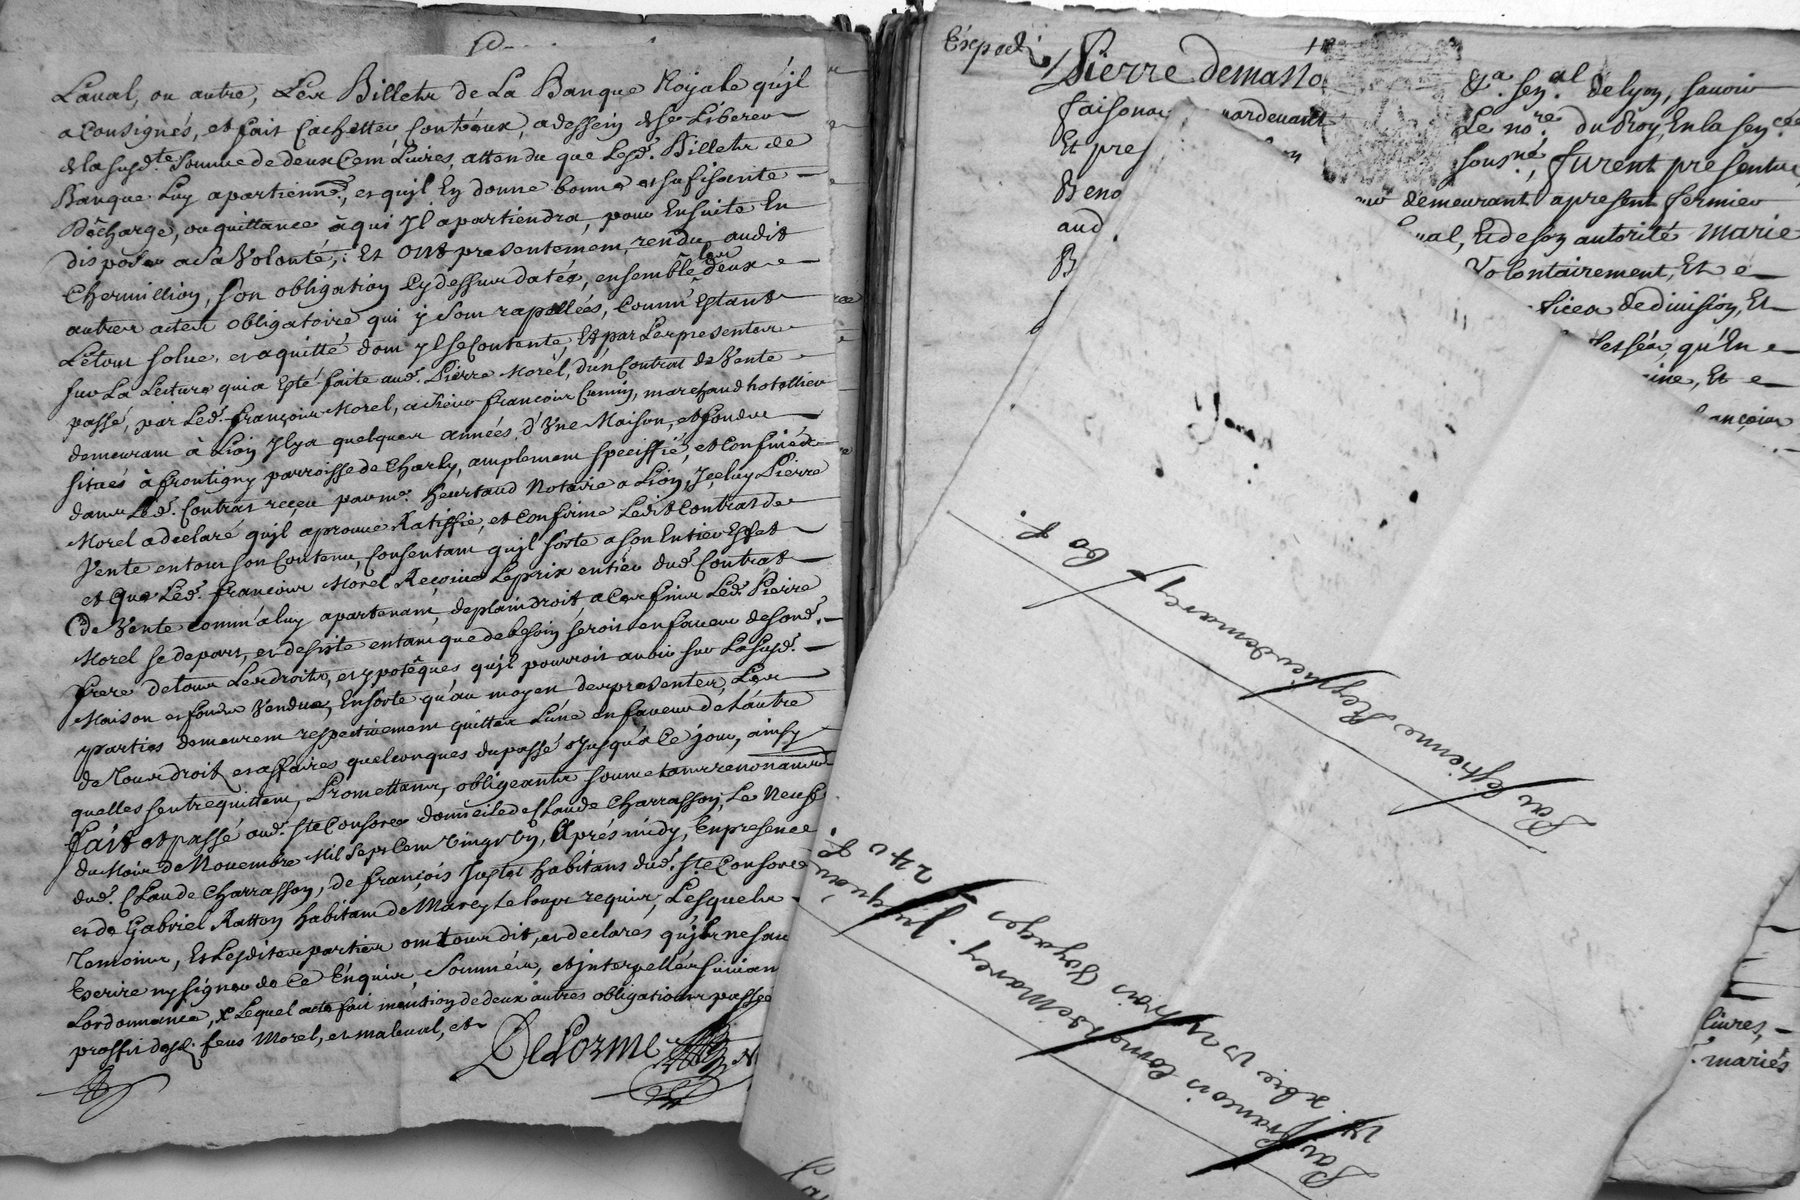 Laual, ou autre, Les Billets de La Banque Royale qu'jl
a Consignés, et fait Cachetter d'un sceau, a dessein de se Liberer
de la susd.te Somme de deux Cent Liures, attendu que Lesd. Billets de
Banque Luy apartienn.t, et qu'jl En donne bonne et sufisante
Décharge, ou quittance à qui Jl apartiendra, pour Ensuite En
disposer a sa Volonté; Et Ont presentement rendu audit
Chermillion, son obligation Cy dessus datée, ensemble les deux
autres actes obligatoire qui y sont rapellées, Comm' Estant
Letout solue, et aquitté dont jl se Contente, Et par Les presentes
sur La Lecture qui a Esté faite aud. Pierre Morel, d'un Contrat de Vente
passé, par Led. François Morel, a sieur François Cumin, marchand hotellier
demeurant à Lion Jl y a quelques années, d'Vne Maison, et fondu
situés à frontigny parroisse de Charly, amplement speciffié, et Confinée
dans Led. Contrat receu par me. heurtaud Notaire a Lion, Jceluy Pierre
Morel a declaré qu'jl aprouue Ratiffie, et Confirme Ledit Contrat de
Vente en tout son Contenu, Consentant qu'jl sorte a son Entier Effet
et que Led. François Morel Reçoiue Le prix entier dud. Contrat
de Vente comm' a luy apartenant, de plain droit, a Ces fins Led. Pierre
Morel se depart, et desiste entant que de besoin seroit en faueur de sond.
frere de tous Les droits, et ypotêques qu'jl pourroit auoir sur La susd.
Maison et fonds Vendus, En sorte qu'au moyen des presentes, Les
parties demeurent respectiuement quittes L'une en faueur de L'autre
de Tous droit, et affaires quelconques du passé Jusqu'à Ce jour, ainsy
quelles sentrequittent, Promettant, obligeants soumetans renonants
fait et passé aud. Ste Consorce domicile de Claude Charrasson, Le Neuf
du Mois de Nouembre Mil Sept Cent Vingt Vn, Aprés midy, En presence
dud. Claude Charrasson, de François Juptet habitans dud. Ste Consorce
et de Gabriel Ratton habitant de Marcy Le loup requis, Lesquels
Temoins, Et Lesdites parties ont tous dit, et declares qu'jls ne sau
Escrire ny signer de Ce Enquis, Sommés, et jnterpellés suiuan
Lordonnance, x Lequel acte fait mention de deux autres obligations passée
proffit desd. feus Morel, et malaual, et
DeLorme
Expedi
Pierre demasso
faisona
Et pre
Beno
aud
B
pardeuant
& a. sen.al de lyon, sauoir
Le no.re du Roy, En la sen.cée
sous.né, furent presents,
demeurant apresent fermier
ual, Et de son autorité Marie
Volontairement, Et
tices de diuision, Et
lesséa, qu'En
ine, Et
ançois
liures,
mariés
Par Estienne Reynier de marcy 60 #.
Par François Cornet de Marcy. Jusquau
xbre
trois Voyages 240 #.